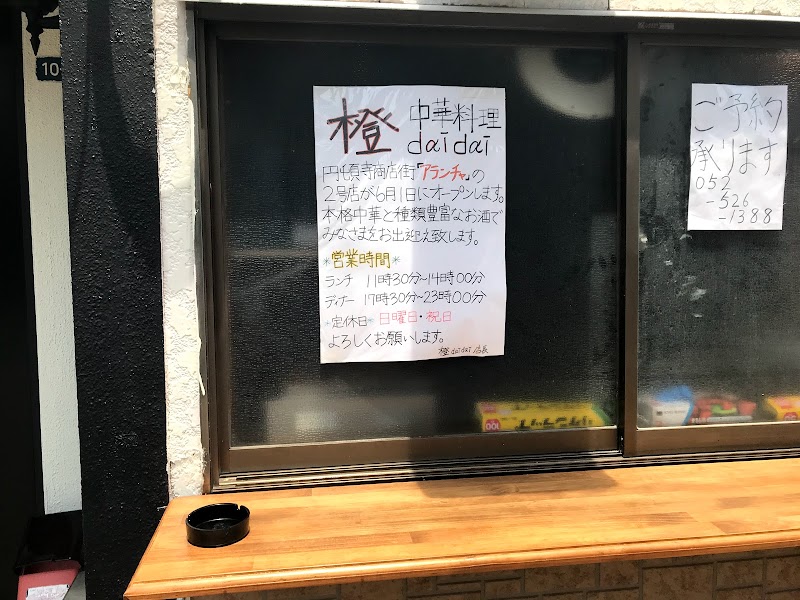 橙 中華料理
daīdaī
円頓寺商店街「アランチャ」の
2号店が6月1日にオープンします。
本格中華と種類豊富なお酒で
みなさまをお出迎え致します。
*営業時間*
ランチ 11時30分~14時00分
ディナー 17時30分~23時00分
*定休日* 日曜日・祝日
よろしくお願いします。
橙 daīdaī 店長
ご予約
承ります
052
-526
-1388
10
100